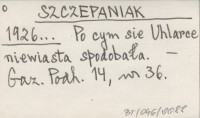 SZCZEPANIAK
1926... Po cym sie Uhlarce
niewiasta spodobała. —
Gaz. Podh. 14, nr 36.